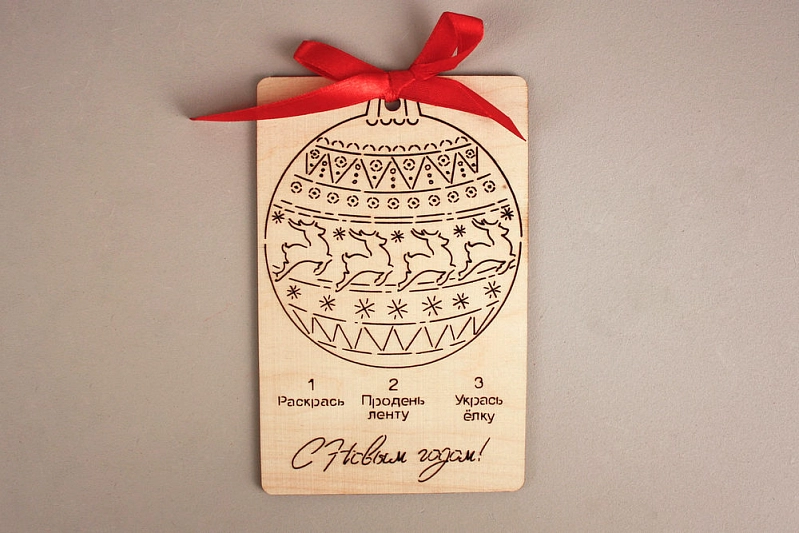 1 2 3
Раскрась Продень Укрась
ленту ёлку
С Новым годом!